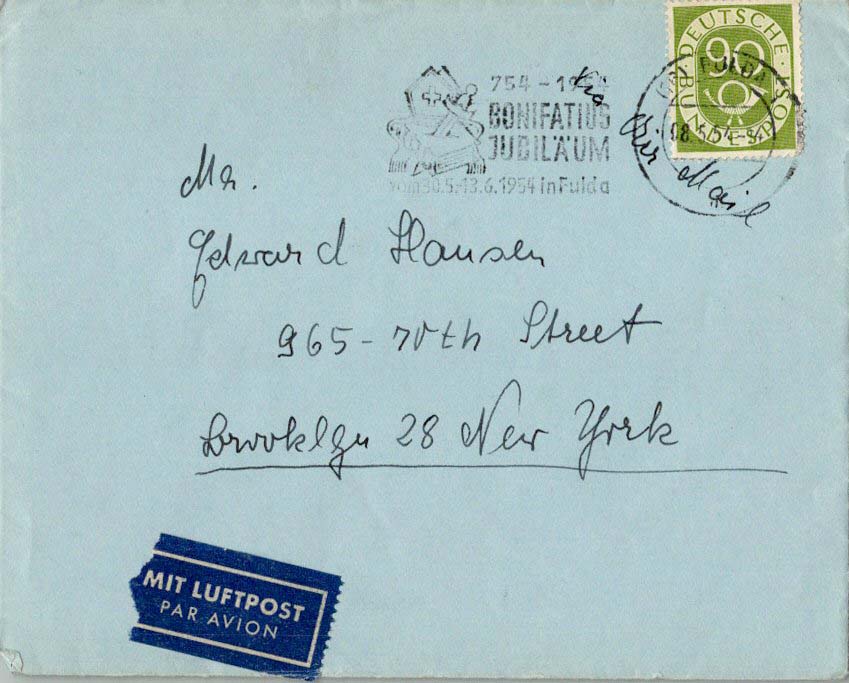 DEUTSCHE BUNDESPOST
90
FULDA
754 - 1954
BONIFATIUS
JUBILÄUM
vom 30.5.-13.6.1954 in Fulda
Via
Air Mail
Mr.
Edward Hansen
965 - 70th Street
Brooklyn 28 New York
MIT LUFTPOST
PAR AVION